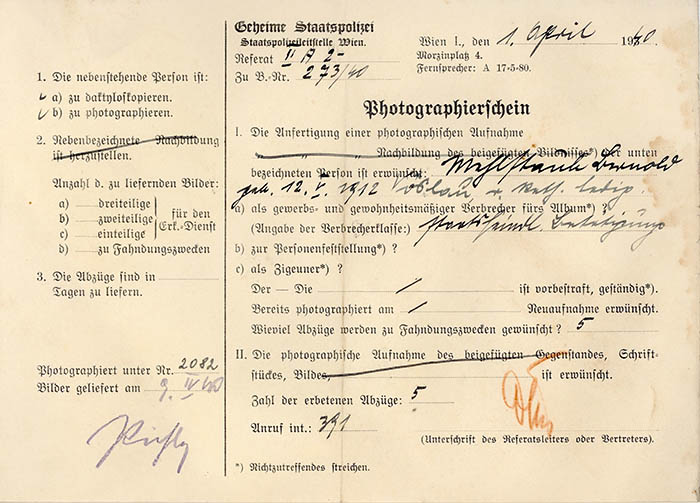 Geheime Staatspolizei
Staatspolizeileitstelle Wien.
Referat II A 2-
Zu B.-Nr. 273/40
Wien I., den 1. April 1940.
Morzinplatz 4.
Fernsprecher: A 17-5-80.
1. Die nebenstehende Person ist:
a) zu daktyloskopieren.
b) zu photographieren.
2. Nebenbezeichnete Nachbildung
ist herzustellen.
Anzahl d. zu liefernden Bilder:
a) dreiteilige
b) zweiteilige
c) einteilige
für den
Erk.-Dienst
d) zu Fahndungszwecken
3. Die Abzüge sind in
Tagen zu liefern.
Photographiert unter Nr. 2082
Bilder geliefert am 9. IV 40
Photographierschein
I. Die Anfertigung einer photographischen Aufnahme
" " Nachbildung des beigefügten Bildnisses*) der unten
bezeichneten Person ist erwünscht:
geb. 12. V. 1912 Vöslau, r. kath. ledig.
a) als gewerbs- und gewohnheitsmäßiger Verbrecher fürs Album*)?
(Angabe der Verbrecherklasse:) staatsfeindl. Betätigung
b) zur Personenfeststellung*) ?
c) als Zigeuner*) ?
Der — Die / ist vorbestraft, geständig*).
Bereits photographiert am / Neuaufnahme erwünscht.
Wieviel Abzüge werden zu Fahndungszwecken gewünscht ? 5
II. Die photographische Aufnahme des beigefügten Gegenstandes, Schrift-
stückes, Bildes, ist erwünscht.
Zahl der erbetenen Abzüge: 5
Anruf int.: 391
(Unterschrift des Referatsleiters oder Vertreters).
*) Nichtzutreffendes streichen.